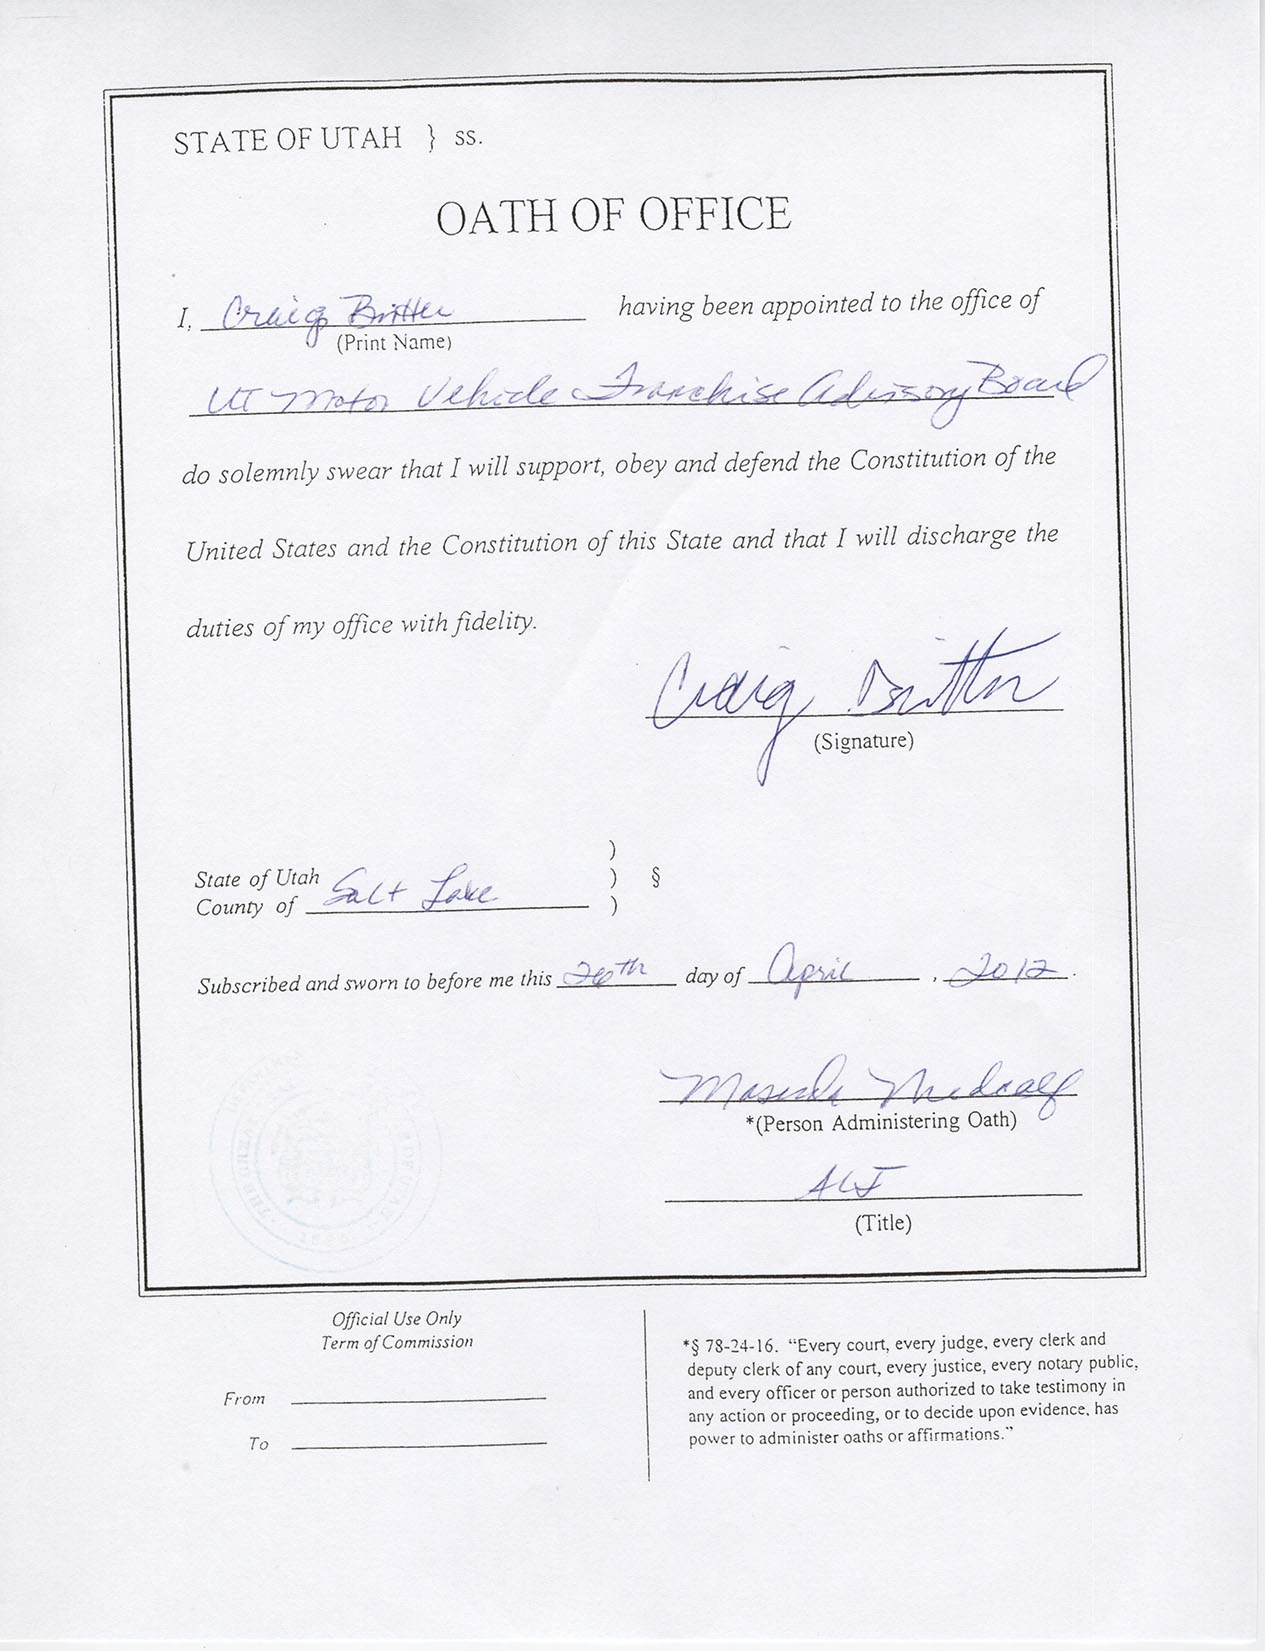 STATE OF UTAH } ss.
OATH OF OFFICE
I, Craig Bitter having been appointed to the office of
(Print Name)
UT Motor Vehicle Franchise Advisory Board
do solemnly swear that I will support, obey and defend the Constitution of the
United States and the Constitution of this State and that I will discharge the
duties of my office with fidelity.
Craig Bitter
(Signature)
)
State of Utah ) §
County of Salt Lake )
Subscribed and sworn to before me this 26th day of April , 2012 .
Medcalf
*(Person Administering Oath)
ALJ
(Title)
1896
Official Use Only
Term of Commission
From
To
*§ 78-24-16. “Every court, every judge, every clerk and
deputy clerk of any court, every justice, every notary public,
and every officer or person authorized to take testimony in
any action or proceeding, or to decide upon evidence, has
power to administer oaths or affirmations.”